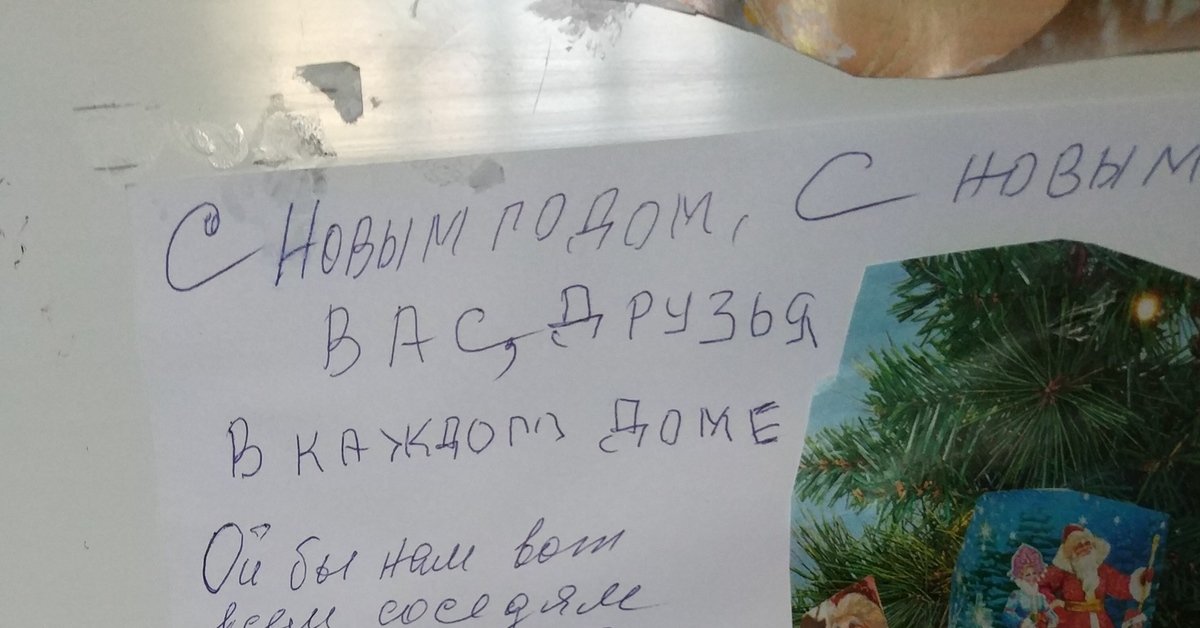 С НОВЫМ ГОДОМ, С НОВЫМ
ВАС, ДРУЗЬЯ
В КАЖДОМ ДОМЕ
Ой бы нам вот
всем соседям